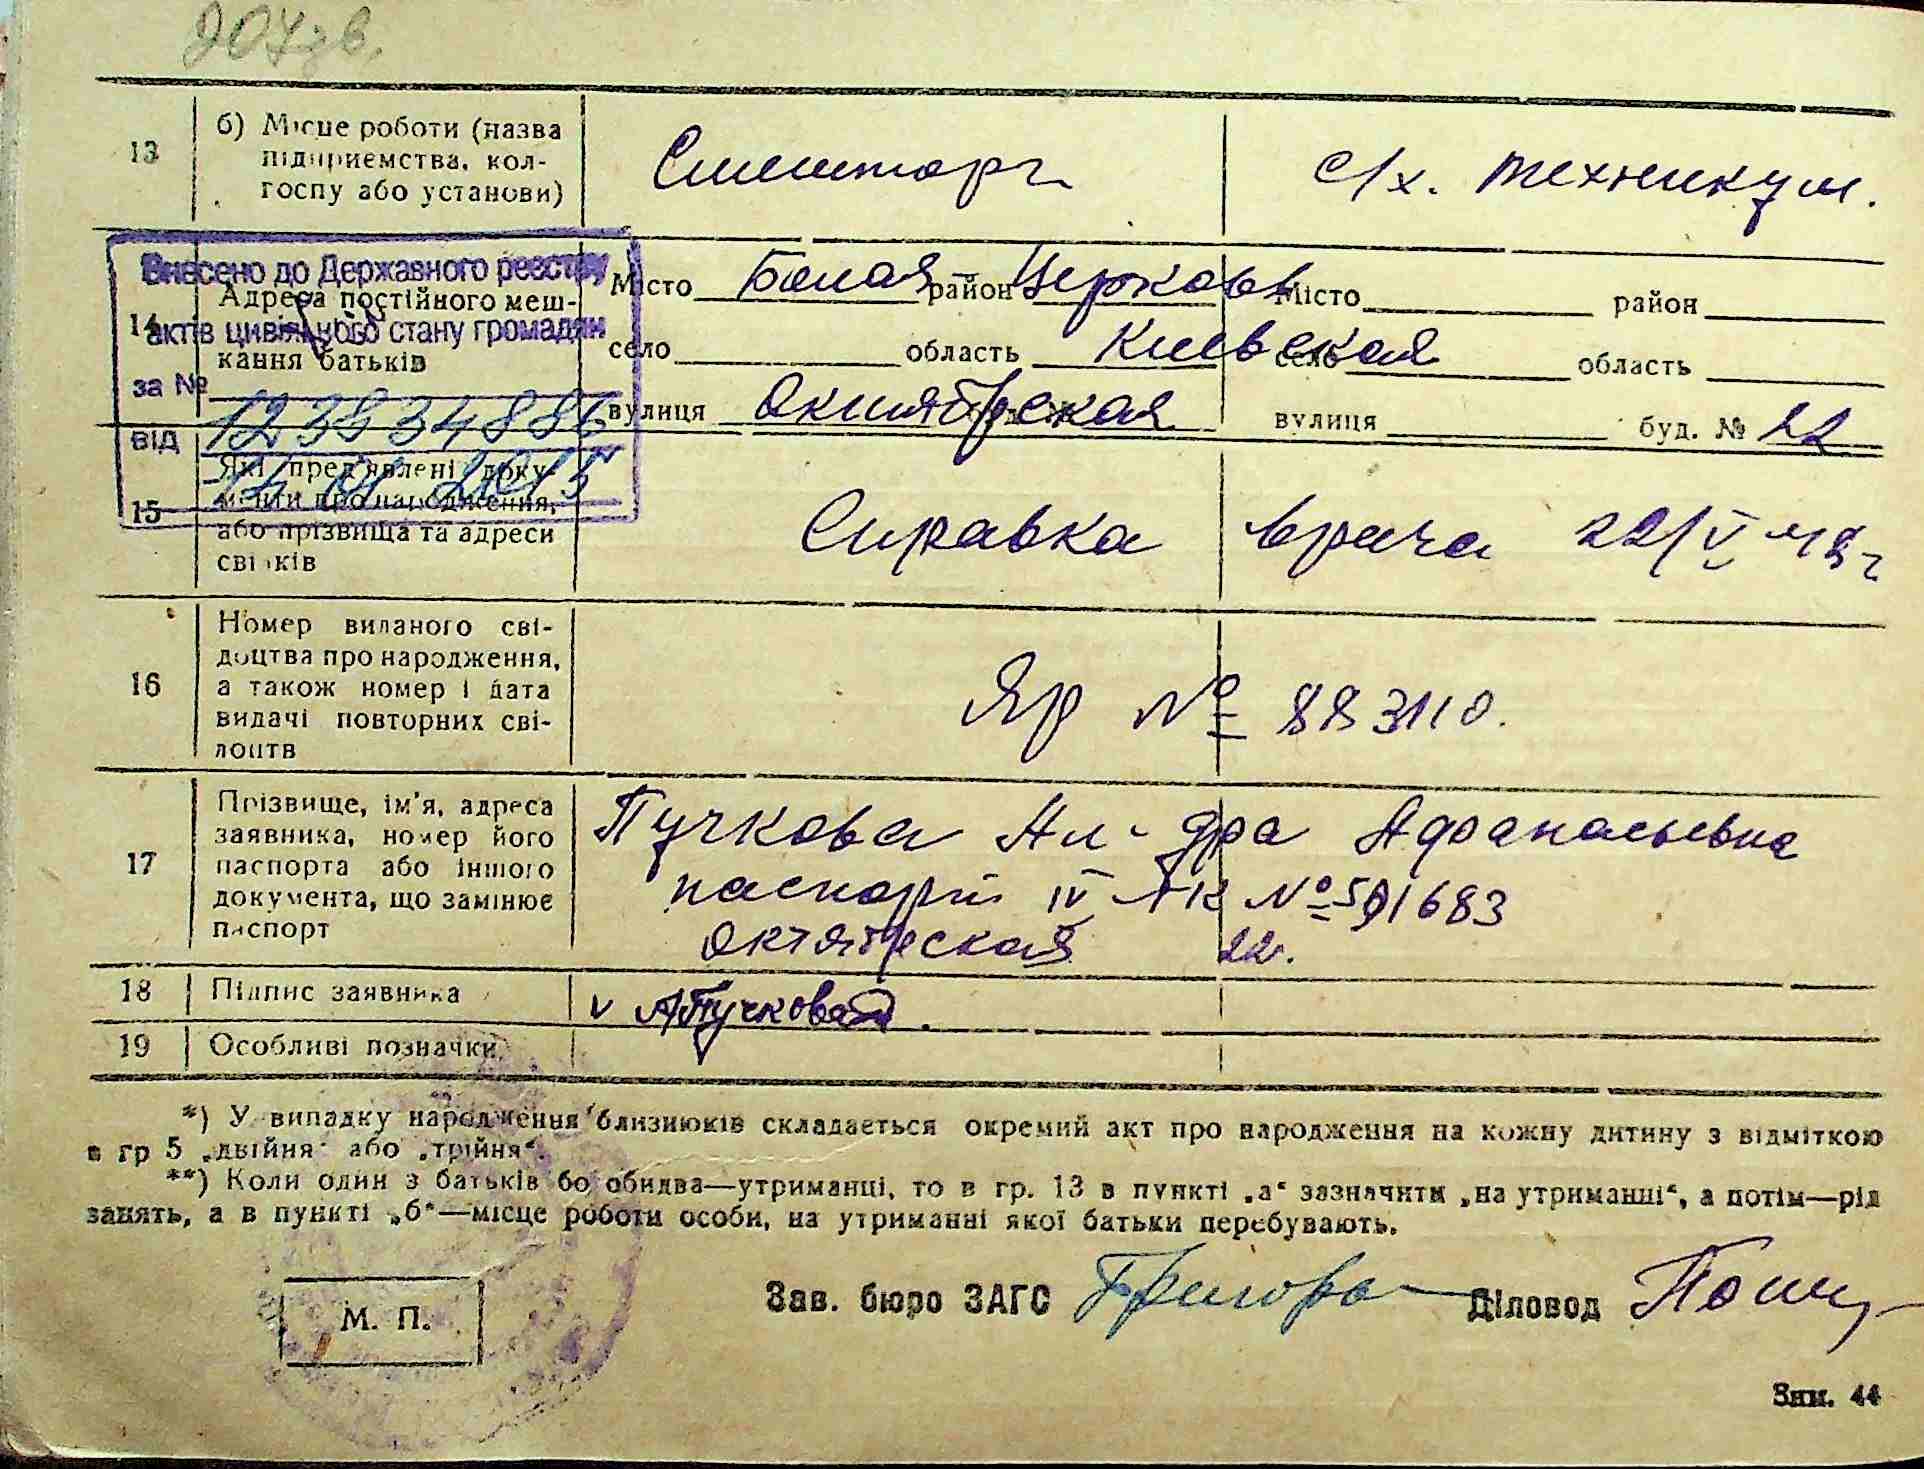 207зв.
13
б) Місце роботи (назва
підприємства, кол-
госпу або установи)
Смешторг
с/х. техникум.
Внесено до Державного реєстру
актів цивільного стану громадян
за № 12383488
від 2015
14
Адреса постійного меш-
кання батьків
Місто Белая район Церковь
село область Киевская
вулиця Октябрьская
Місто район
село область
вулиця буд. № 22
15
Які пред'явлені доку-
менти про народження,
або прізвища та адреси
свідків
Справка врача 22/V
16
Номер виданого сві-
доцтва про народження,
а також номер і дата
видачі повторних сві-
доцтв
Яр № 883110.
17
Прізвище, ім'я, адреса
заявника, номер його
паспорта або іншого
документа, що замінює
паспорт
Пучкова Ал-дра Афанасьевна
паспорт IV № 591683
Октябрьская 22.
18
Підпис заявника
v АПучкова
19
Особливі позначки
*) У випадку народження близнюків складається окремий акт про народження на кожну дитину з відміткою
в гр 5 „двійня" або „трійня".
**) Коли один з батьків бо обидва—утриманці, то в гр. 13 в пункті „а" зазначити „на утриманні", а потім—рід
занять, а в пункті „б"—місце роботи особи, на утриманні якої батьки перебувають.
М. П.
Зав. бюро ЗАГС
Діловод
Зим. 44